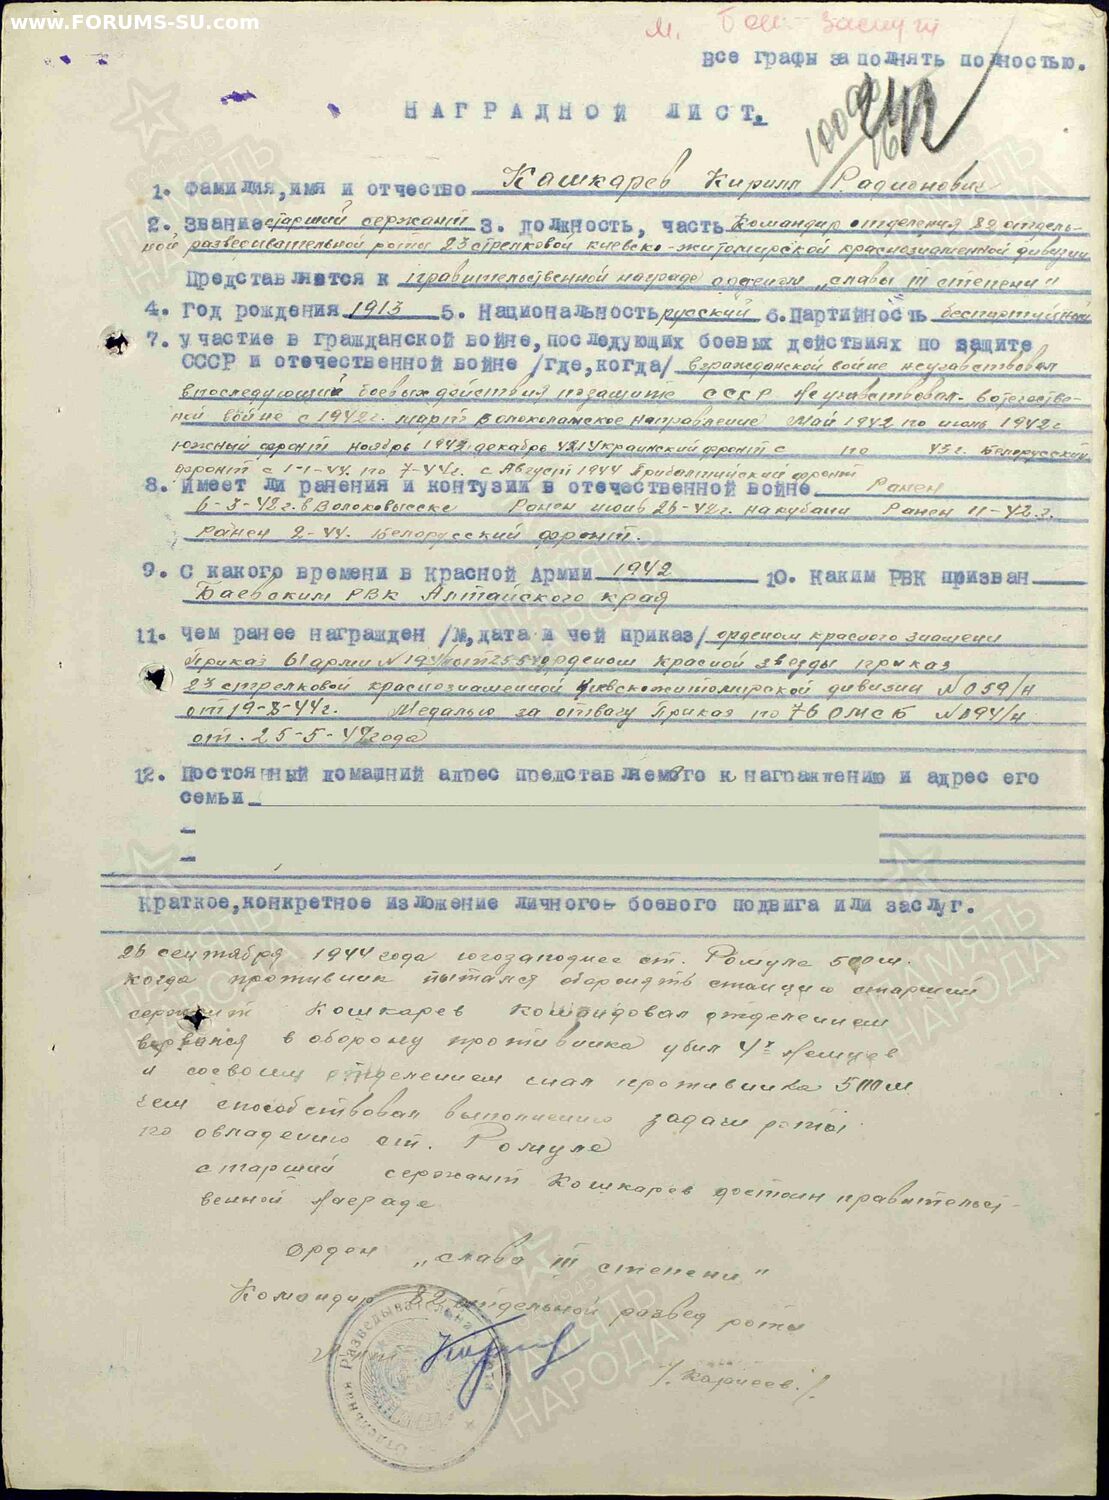 www.FORUMS-SU.com
м. Бое. заслуги
все графы заполнять полностью.
НАГРАДНОЙ ЛИСТ.
1. Фамилия, имя и отчество Кошкарев Кирилл Радионович
2. Звание старший сержант 3. должность, часть Командир отделения 82 отдель-
ной разведывательной роты 23 стрелковой киевско-житомирской краснознаменной дивизии
Представляется к правительственной награде орденом „славы III степени"
4. Год рождения 1913 5. Национальность русский 6. Партийность беспартийный
7. участие в гражданской войне, последующих боевых действиях по защите
СССР и отечественной войне /где, когда/ вгражданской войне неучавствовал
впоследующий боевых действия позащите СССР Неучавствовал. вотечестве-
ной войне с 1942г. март Волоколамское направление Май 1942 по июль 1942г
южный фронт ноябрь 1942 декабрь 42 1 Украинский фронт с по 43г. Белорусский
фронт с 1-1-44. по 7-44г. с Август 1944 Прибалтийский фронт
8. Имеет ли ранения и контузии в отечественной войне Ранен
6-3-42г. в Волоковысске Ранен июнь 26-42г. на кубани Ранен 11-42г.
Ранен 2-44. Белорусский фронт.
9. С какого времени в Красной Армии 1942 10. Каким РВК призван
Баевским РВК Алтайского края
11. чем ранее награжден /№, дата и чей приказ/ орденом красного знамени
Приказ 61 арми орденом Красной звезды приказ
23 стрелковой краснознаменной Киевскожитомирской дивизии №059/н
от 19-8-44г. Медалью за отвагу Приказ по 76 ОМСБ №094/н
от. 25-5-42года
12. Постоянный домашний адрес представляемого к награждению и адрес его
семьи
Краткое, конкретное изложение личного боевого подвига или заслуг.
26 сентября 1944 года югозападнее ст. Ромуле 500м.
когда противник пытался оборонять станцию старший
сержант Кошкарев командовал отделением
ворвался в оборону противника убил 4х немцев
и сосвоим отделением гнал противника 500м.
чем способствовал выполнению задачи роты
по овладению ст. Ромуле
старший сержант Кошкарев достоин правительст-
венной награде
Орден „слава III степени"
Командир 82 отдельной развед роты
/. Карпеев. /.
Отдельная Разведывательная рота
ПАМЯТЬ НАРОДА